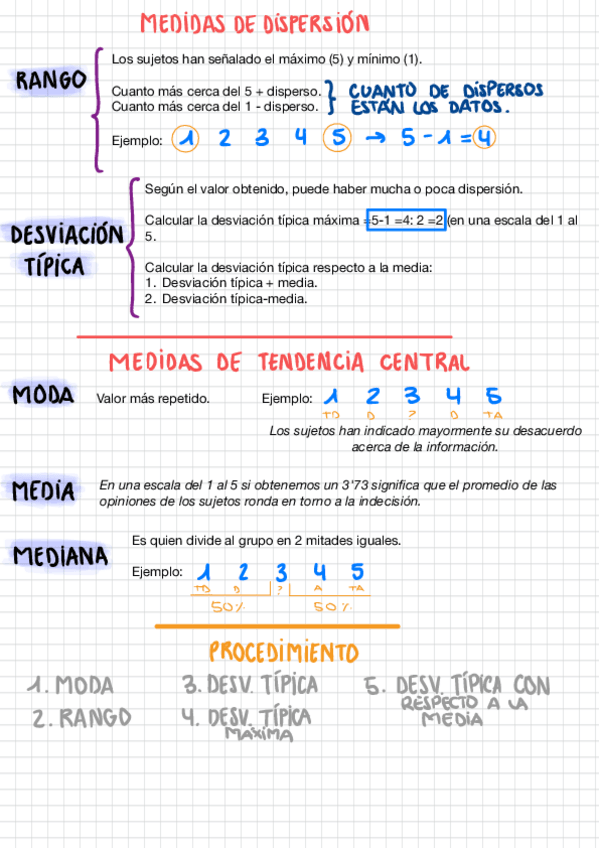 MEDIDAS DE DISPERSIÓN
RANGO
Los sujetos han señalado el máximo (5) y mínimo (1).
Cuanto más cerca del 5 + disperso.
Cuanto más cerca del 1 - disperso.
CUANTO DE DISPERSOS
ESTÁN LOS DATOS.
Ejemplo: 1 2 3 4 5 → 5 - 1 = 4
DESVIACIÓN
TÍPICA
Según el valor obtenido, puede haber mucha o poca dispersión.
Calcular la desviación típica máxima =5-1 =4: 2 =2 (en una escala del 1 al
5.
Calcular la desviación típica respecto a la media:
1. Desviación típica + media.
2. Desviación típica-media.
MEDIDAS DE TENDENCIA CENTRAL
MODA
Valor más repetido.
Ejemplo: 1 2 3 4 5
TD D ? D TA
Los sujetos han indicado mayormente su desacuerdo
acerca de la información.
MEDIA
En una escala del 1 al 5 si obtenemos un 3'73 significa que el promedio de las
opiniones de los sujetos ronda en torno a la indecisión.
MEDIANA
Es quien divide al grupo en 2 mitades iguales.
Ejemplo: 1 2 3 4 5
TD D ? A TA
50% 50%
PROCEDIMIENTO
1. MODA
2. RANGO
3. DESV. TÍPICA
4. DESV. TÍPICA
MÁXIMA
5. DESV. TÍPICA CON
RESPECTO A LA
MEDIA